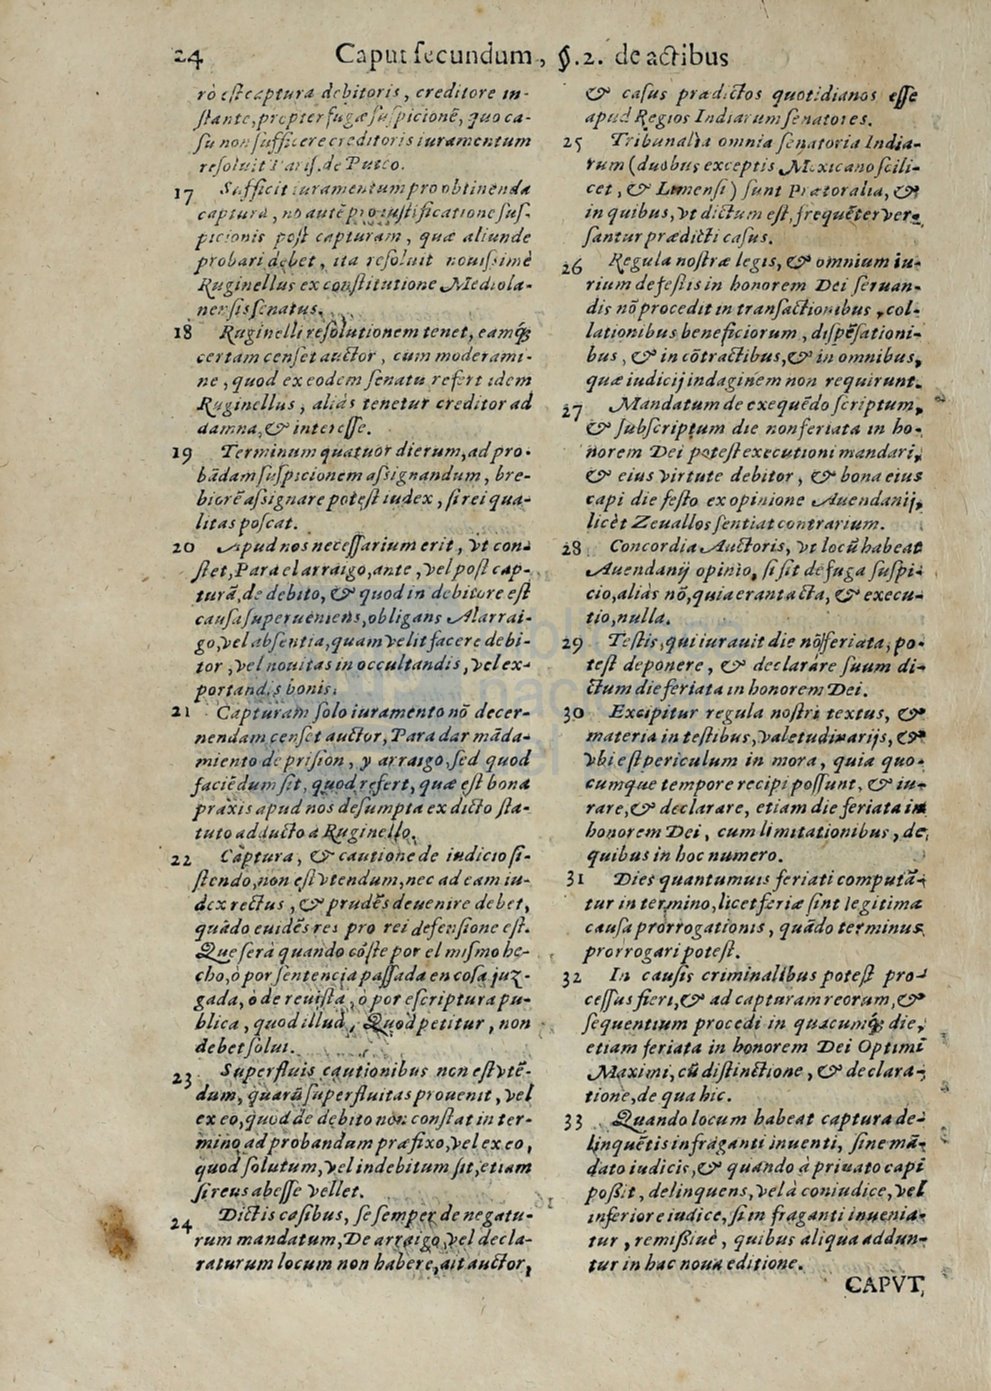 24 Caput ſecundum, §.2. de actibus
rò eſt captura debitoris, creditore in-
ſtante, propter fugæ ſuſpicionẽ, quo ca-
ſu non ſufficere creditoris iuramentum
reſoluit Pariſ. de Puteo.
17 Sufficit iuramentum pro obtinenda
captura, nõ autẽ pro iuſtificatione ſuſ-
picionis poſt capturam, quæ aliunde
probari debet, ita reſoluit nouiſsimè
Ruginellus ex conſtitutione Mediola-
nenſis ſenatus.
18 Ruginelli reſolutionem tenet, eamq́
certam cenſet auctor, cum moderami-
ne, quod ex eodem ſenatu refert idem
Ruginellus, aliàs tenetur creditor ad
damna, & intereſſe.
19 Terminum quatuor dierum, ad pro-
bãdam ſuſpicionem aſsignandum, bre-
biorẽ aſsignare poteſt iudex, ſi rei qua-
litas poſcat.
20 Apud nos neceſſarium erit, vt con-
ſtet, Para el arraigo, ante, vel poſt cap-
turã, de debito, & quod in debitore eſt
cauſa ſuperueniens, obligans Al arrai-
go, vel abſentia, quam velit facere debi-
tor, vel nouitas in occultandis, vel ex-
portandis bonis.
21 Capturam ſolo iuramento nõ decer-
nendam cenſet auctor, Para dar mãda-
miento de priſion, y arraigo, ſed quod
faciẽdum ſit, quod refert, quæ eſt bona
praxis apud nos deſumpta ex dicto ſta-
tuto adducto à Ruginello.
22 Captura, & cautione de iudicio ſi-
ſtendo, non eſt vtendum, nec ad eam iu-
dex rectus, & prudẽs deuenire debet,
quãdo euidẽs res pro rei defenſione eſt.
Que ſerà quando cõſte por el miſmo he-
cho, ò por ſentencia paſſada en coſa juz-
gada, ò de reuiſta, ò por eſcriptura pu-
blica, quod illud, Quod petitur, non
debet ſolui.
23 Superfluis cautionibus non eſt vtẽ-
dum, quarũ ſuperfluitas prouenit, vel
ex eo, quod de debito non conſtat in ter-
mino ad probandum præfixo, vel ex eo,
quod ſolutum, vel indebitum ſit, etiam
ſi reus abeſſe vellet.
24 Dictis caſibus, ſe ſemper denegatu-
rum mandatum, De arraigo, vel decla-
raturum locum non habere, ait auctor,
& caſus prædictos quotidianos eſſe
apud Regios Indiarum ſenatores.
25 Tribunalia omnia ſenatoria India-
rum (duobus exceptis Mexicano ſcili-
cet, & Limenſi) ſunt Prætoralia, &
in quibus, vt dictum eſt, frequẽter ver-
ſantur prædicti caſus.
26 Regula noſtræ legis, & omnium iu-
rium de feſtis in honorem Dei ſeruan-
dis nõ procedit in tranſactionibus, col-
lationibus beneficiorum, diſpẽſationi-
bus, & in cõtractibus, & in omnibus,
quæ iudicij indaginem non requirunt.
27 Mandatum de exequẽdo ſcriptum,
& ſubſcriptum die non feriata in ho-
norem Dei poteſt executioni mandari,
& eius virtute debitor, & bona eius
capi die feſto ex opinione Auendanij,
licèt Zeuallos ſentiat contrarium.
28 Concordia Auctoris, vt locũ habeat
Auendanij opinio, ſi ſit de fuga ſuſpi-
cio, aliàs nõ, quia erant acta, & execu-
tio, nulla.
29 Teſtis, qui iurauit die nõ feriata, po-
teſt deponere, & declarare ſuum di-
ctum die feriata in honorem Dei.
30 Excipitur regula noſtri textus, &
materia in teſtibus, valetudinarijs, &
vbi eſt periculum in mora, quia quo-
cumque tempore recipi poſſunt, & iu-
rare, & declarare, etiam die feriata in
honorem Dei, cum limitationibus, de
quibus in hoc numero.
31 Dies quantumuis feriati computã-
tur in termino, licet feriæ ſint legitima
cauſa prorrogationis, quãdo terminus
prorrogari poteſt.
32 In cauſis criminalibus poteſt pro-
ceſſus fieri, & ad capturam reorum, &
ſequentium procedi in quacumq́; die,
etiam feriata in honorem Dei Optimi
Maximi, cũ diſtinctione, & declara-
tione, de qua hic.
33 Quando locum habeat captura de-
linquẽtis in fraganti inuenti, ſine mã-
dato iudicis, & quando à priuato capi
poſsit, delinquens, vel à coniudice, vel
inferiore iudice, ſi in fraganti inuenia-
tur, remiſsiuè, quibus aliqua addun-
tur in hac noua editione.
CAPVT